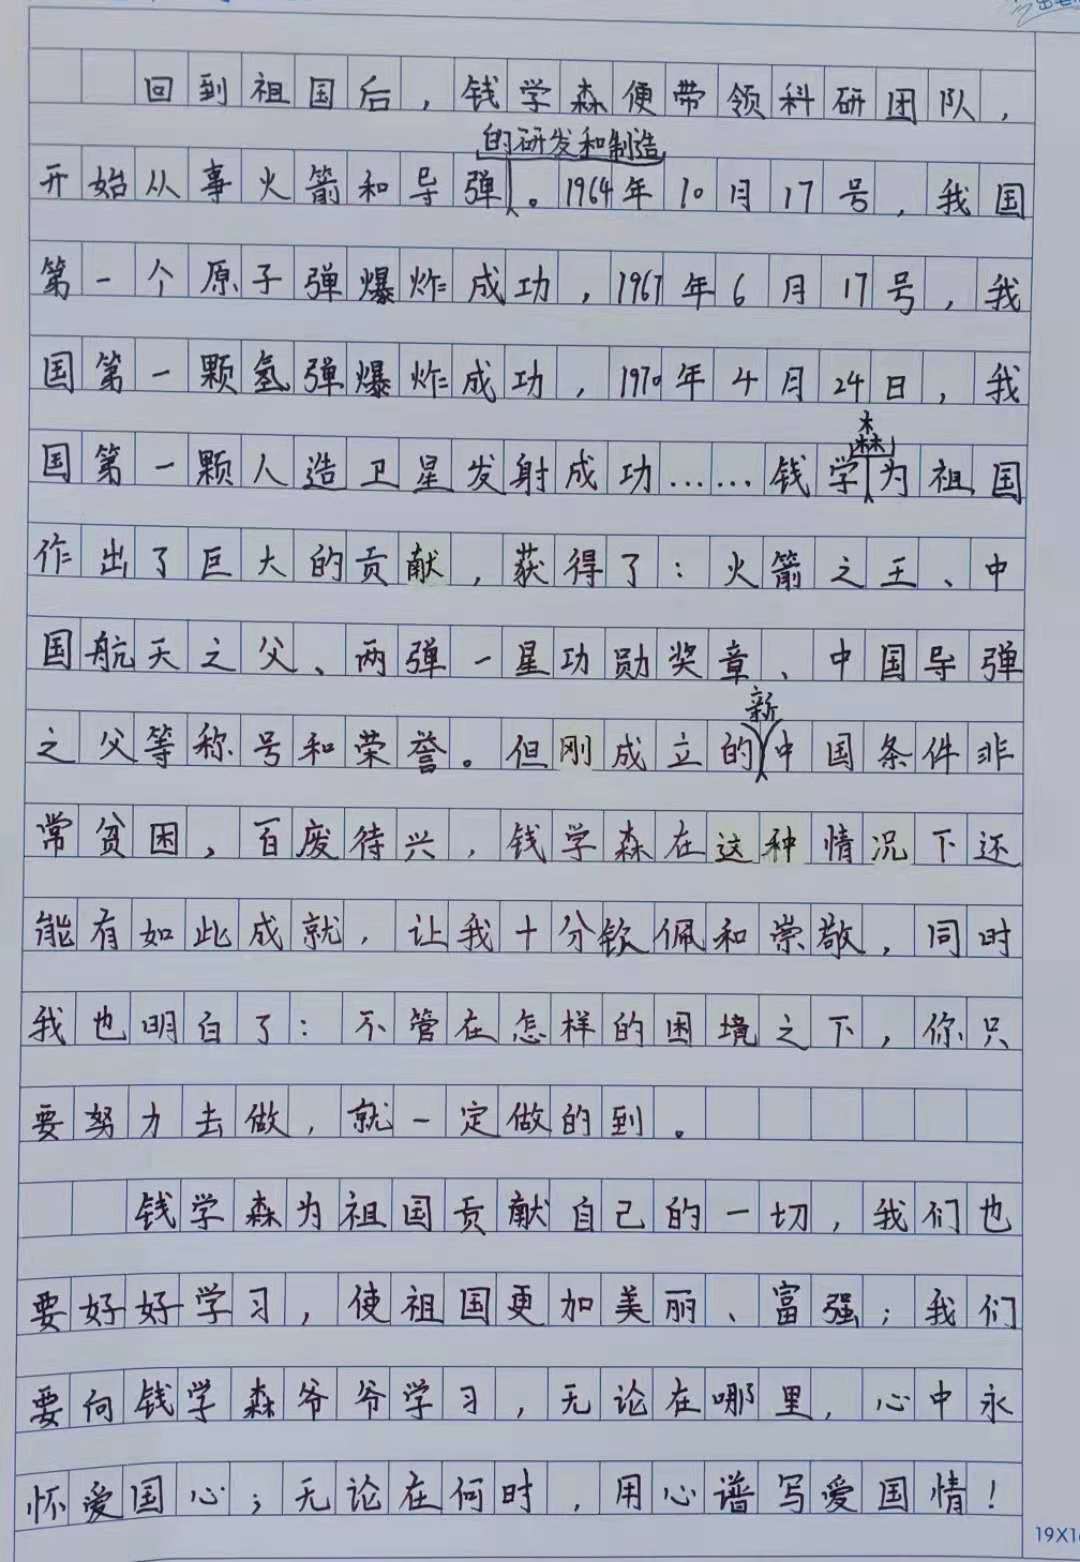 回到祖国后，钱学森便带领科研团队，
的研发和制造
开始从事火箭和导弹。1964年10月17号，我国
第一个原子弹爆炸成功，1967年6月17号，我
国第一颗氢弹爆炸成功，1970年4月24日，我
森
国第一颗人造卫星发射成功……钱学为祖国
作出了巨大的贡献，获得了：火箭之王、中
国航天之父、两弹一星功勋奖章、中国导弹
新
之父等称号和荣誉。但刚成立的中国条件非
常贫困，百废待兴，钱学森在这种情况下还
能有如此成就，让我十分钦佩和崇敬，同时
我也明白了：不管在怎样的困境之下，你只
要努力去做，就一定做的到。
钱学森为祖国贡献自己的一切，我们也
要好好学习，使祖国更加美丽、富强；我们
要向钱学森爷爷学习，无论在哪里，心中永
怀爱国心；无论在何时，用心谱写爱国情！